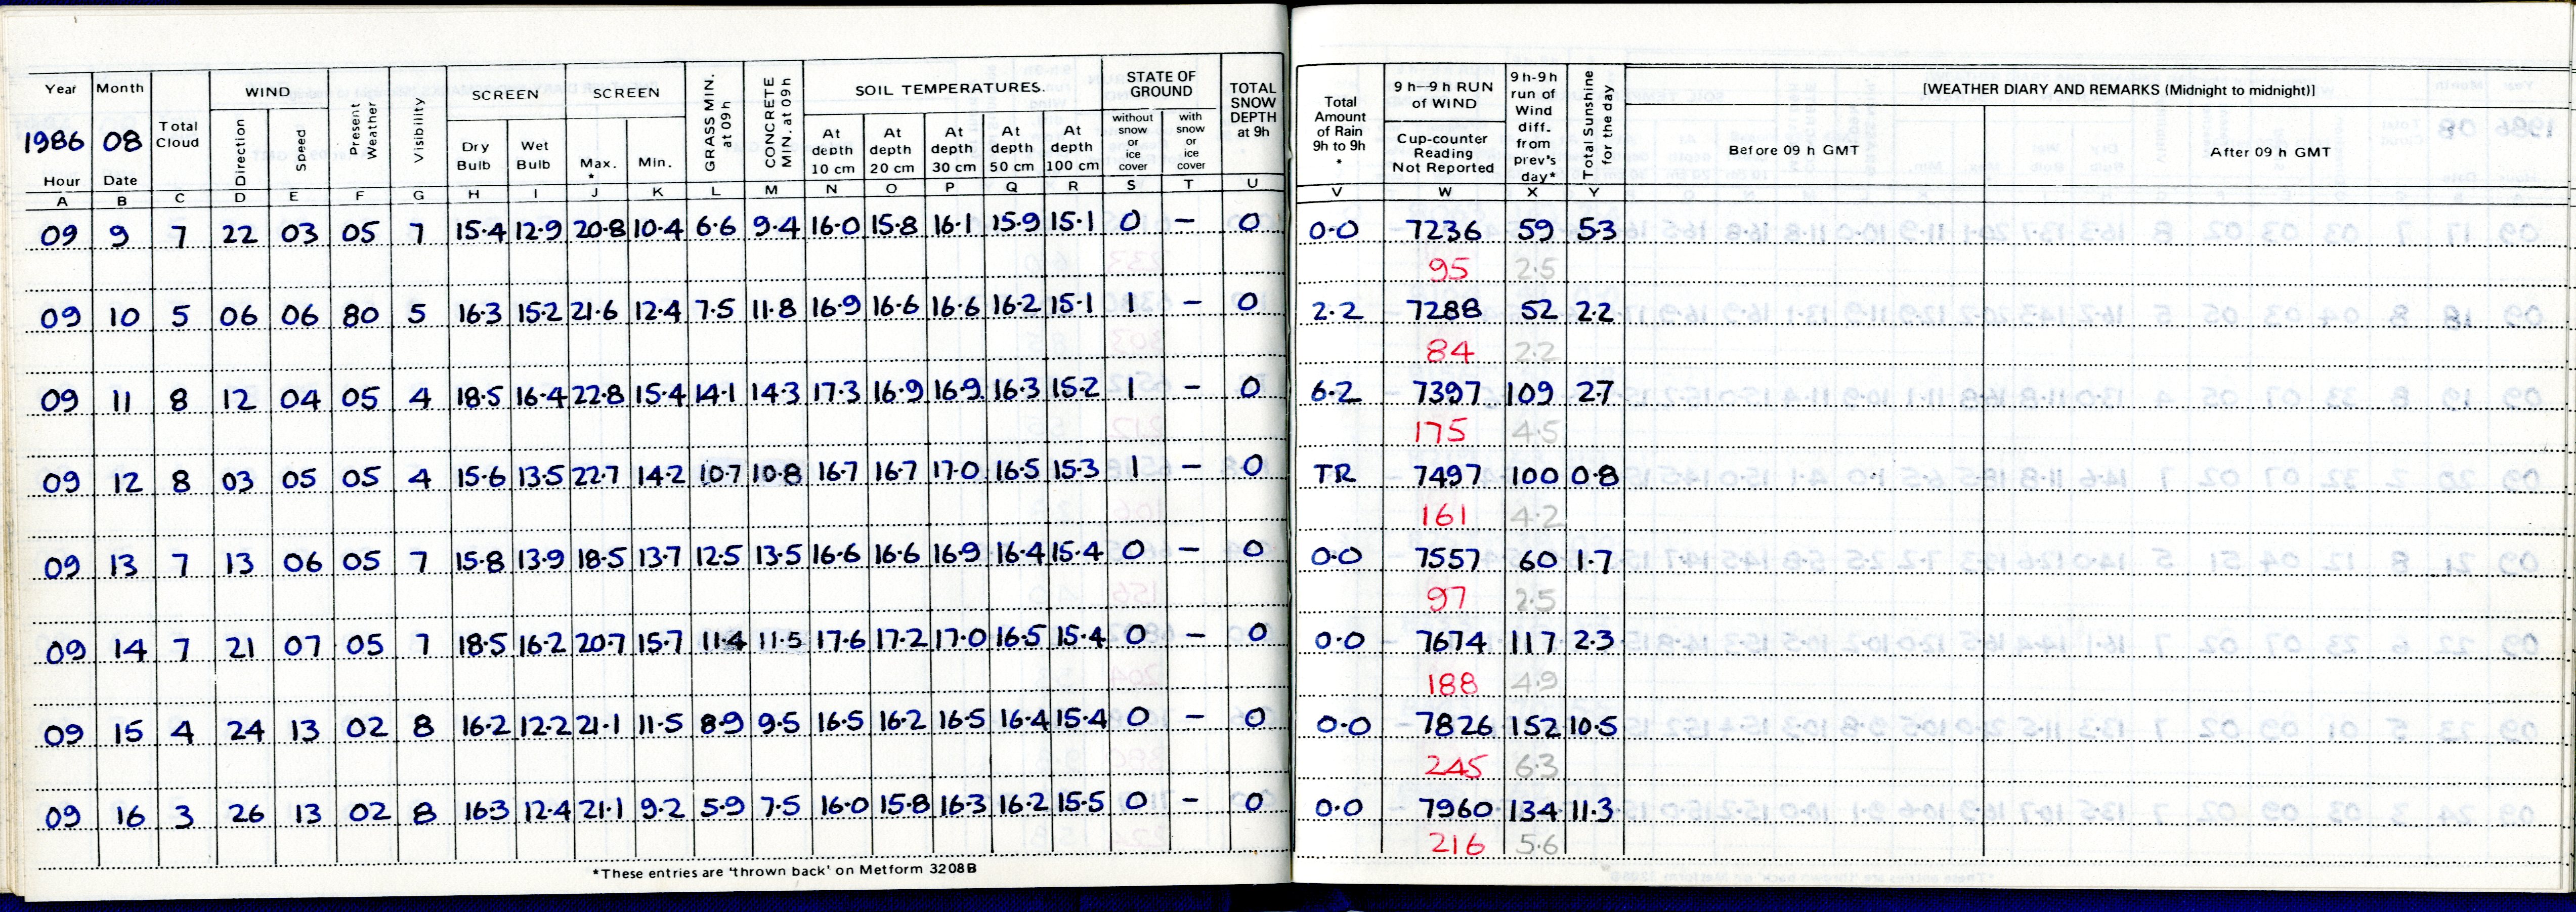 Year Month WIND SCREEN SCREEN GRASS MIN. at 09h CONCRETE MIN. at 09h SOIL TEMPERATURES. STATE OF GROUND TOTAL SNOW DEPTH at 9h Total Amount of Rain 9h to 9h * 9 h—9 h RUN of WIND 9 h-9h run of Wind diff. from prev's day* Total Sunshine for the day [WEATHER DIARY AND REMARKS (Midnight to midnight)]
1986 08 Total Cloud Direction Speed Present Weather Visibility Dry Bulb Wet Bulb Max. * Min. At depth 10 cm At depth 20 cm At depth 30 cm At depth 50 cm At depth 100 cm without snow or ice cover with snow or ice cover Cup-counter Reading Not Reported Before 09 h GMT After 09 h GMT
Hour Date
A B C D E F G H I J K L M N O P Q R S T U V W X Y
09 9 7 22 03 05 7 15.4 12.9 20.8 10.4 6.6 9.4 16.0 15.8 16.1 15.9 15.1 0 – 0 0.0 7236 59 5.3
95 2.5
09 10 5 06 06 80 5 16.3 15.2 21.6 12.4 7.5 11.8 16.9 16.6 16.6 16.2 15.1 1 – 0 2.2 7288 52 2.2
84 2.2
09 11 8 12 04 05 4 18.5 16.4 22.8 15.4 14.1 14.3 17.3 16.9 16.9 16.3 15.2 1 – 0 6.2 7397 109 2.7
175 4.5
09 12 8 03 05 05 4 15.6 13.5 22.7 14.2 10.7 10.8 16.7 16.7 17.0 16.5 15.3 1 – 0 TR 7497 100 0.8
161 4.2
09 13 7 13 06 05 7 15.8 13.9 18.5 13.7 12.5 13.5 16.6 16.6 16.9 16.4 15.4 0 – 0 0.0 7557 60 1.7
97 2.5
09 14 7 21 07 05 7 18.5 16.2 20.7 15.7 11.4 11.5 17.6 17.2 17.0 16.5 15.4 0 – 0 0.0 7674 117 2.3
188 4.9
09 15 4 24 13 02 8 16.2 12.2 21.1 11.5 8.9 9.5 16.5 16.2 16.5 16.4 15.4 0 – 0 0.0 7826 152 10.5
245 6.3
09 16 3 26 13 02 8 16.3 12.4 21.1 9.2 5.9 7.5 16.0 15.8 16.3 16.2 15.5 0 – 0 0.0 7960 134 11.3
216 5.6
*These entries are 'thrown back' on Metform 3208B